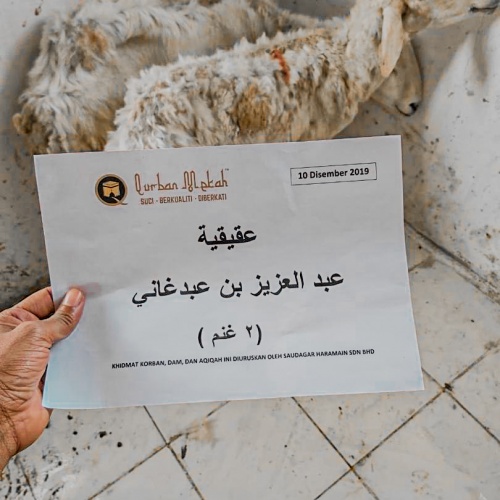 Qurban Mekah™
SUCI - BERKUALITI - DIBERKATI
10 Disember 2019
عقيقية
عبد العزيز بن عبدغاني
(٢ غنم )
KHIDMAT KORBAN, DAM, DAN AQIQAH INI DIURUSKAN OLEH SAUDAGAR HARAMAIN SDN BHD